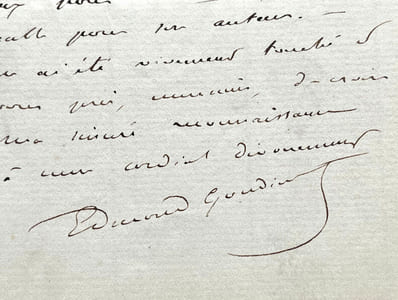 pour
pour son auteur. —
ai été vivement touché &
vous prie, monsieur, de croire
ma sincère reconnaissance
à mon cordial dévouement
Edmond Gondinet